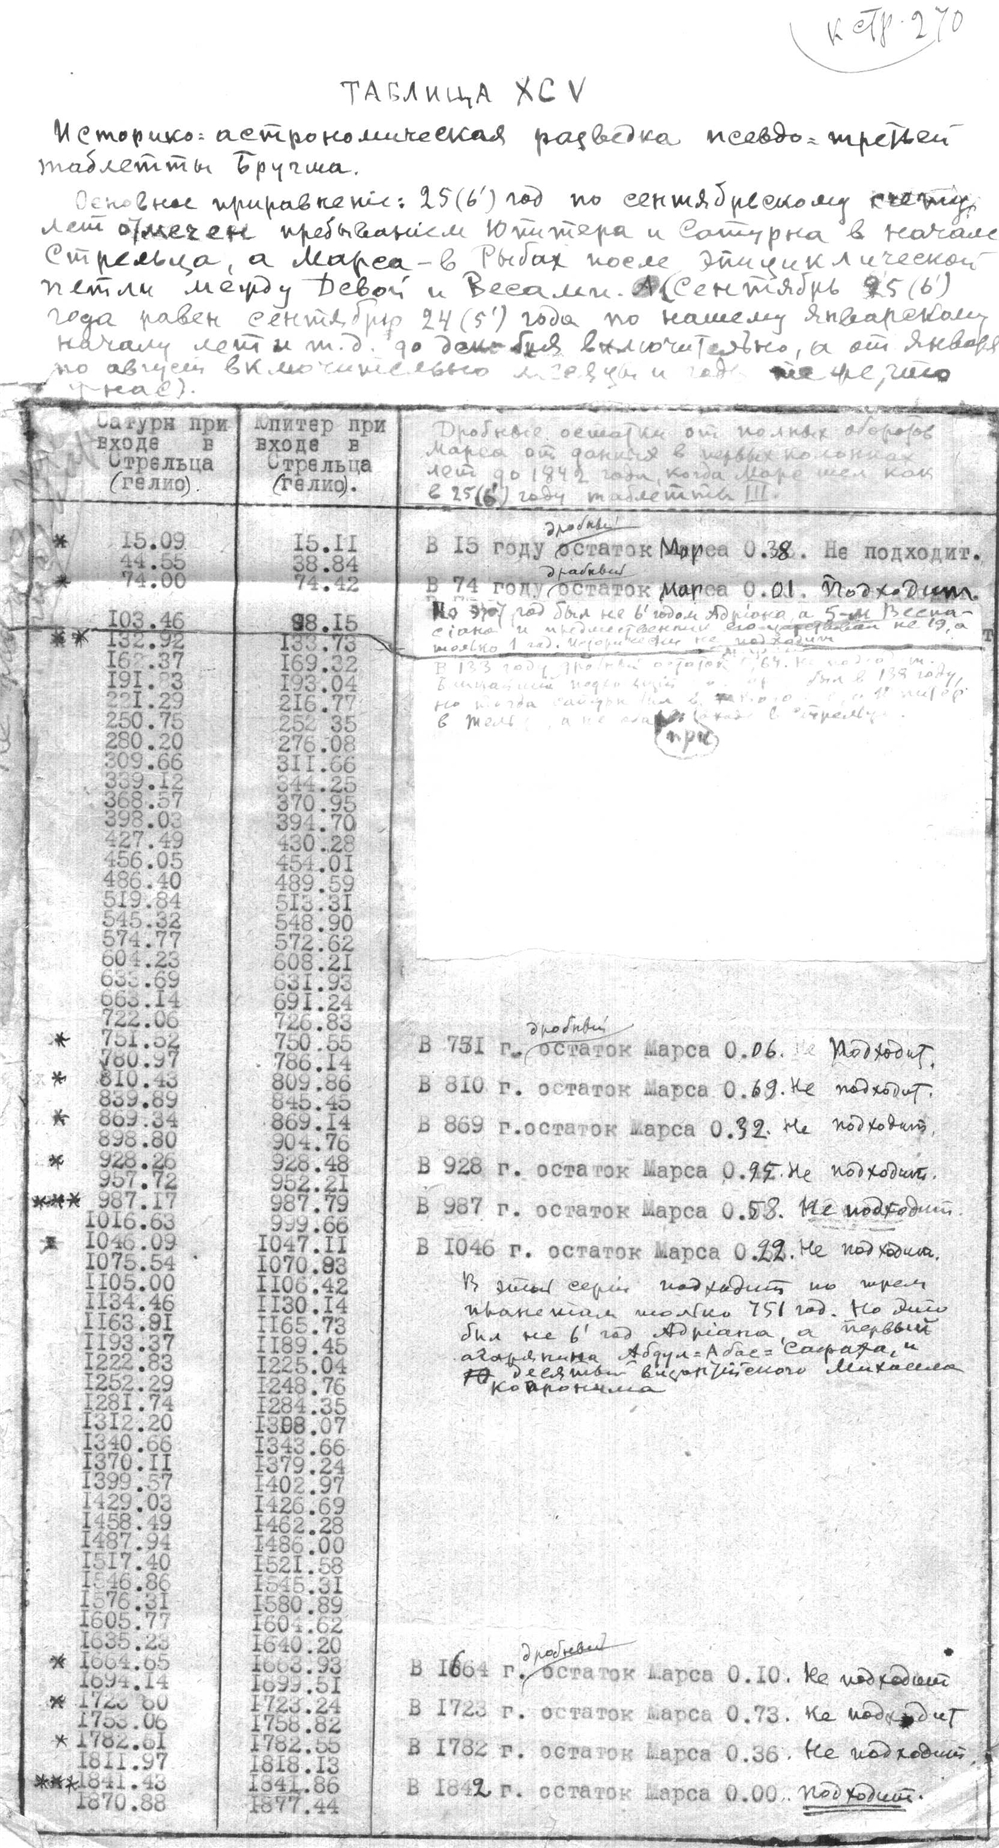 к стр. 270
ТАБЛИЦА XCV
Историко=астрономическая разведка псевдо=третьей
таблетты Бругша.
Основное приравненіе: 25(6') год по сентябрьскому счету
лет отмечен пребываніем Юпитера и Сатурна в начале
Стрельца, а Марса - в Рыбах после эпициклической
петли между Девой и Весами. (Сентябрь 25(6')
года равен сентябрю 24(5') года по нашему январскому
началу лет и т.д. до декабря включительно, а от января
по август включительно месяцы и годы те же, что
у нас).
Сатурн при входе в Стрельца (гелио).
Юпитер при входе в Стрельца (гелио).
Дробные остатки от полных оборотов
Марса от данных в первых колоннах
лет до 1842 года, когда Марс шел как
в 25(6') году таблетты III.
* 15.09 15.11 В 15 году дробный остаток Марса 0.38. Не подходит.
44.55 38.84
* 74.00 74.42 В 74 году дробный остаток Марса 0.01. Подходит.
Но этот год был не 6' годом Адріана а 5-м Веспа-
сіана и предшественник его царствовал не 19, а
только 1 год. Исторически не подходит
103.46 98.15
** 132.92 133.73
В 133 году дробный остаток 0,64. Не подходит.
162.37 169.32
191.83 193.04
был в 138 году,
но тогда Сатурн был в
221.29 216.77
в а не при входе в Стрельца.
при
250.75 252.35
280.20 276.08
309.66 311.66
339.12 344.25
368.57 370.95
398.03 394.70
427.49 430.28
456.05 454.01
486.40 489.59
519.84 513.31
545.32 548.90
574.77 572.62
604.23 608.21
633.69 631.93
663.14 691.24
722.06 726.83
* 751.52 750.55 В 751 г. дробный остаток Марса 0.06. Подходит.
780.97 786.14
* 810.43 809.86 В 810 г. остаток Марса 0.69. Не подходит.
839.89 845.45
* 869.34 869.14 В 869 г.остаток Марса 0.32. Не подходит.
898.80 904.76
* 928.26 928.48 В 928 г. остаток Марса 0.95. Не подходит.
957.72 952.21
*** 987.17 987.79 В 987 г. остаток Марса 0.58. Не подходит.
1016.63 999.66
* 1046.09 1047.11 В 1046 г. остаток Марса 0.22. Не подходит.
1075.54 1070.83
1105.00 1106.42
В этой серіи подходит по трем
1134.46 1130.14
планетам только 751 год. Но это
1163.91 1165.73
был не 6' год Адріана, а первый
1193.37 1189.45
агарянина Абдул=Абас=Сафаха, и
1222.83 1225.04
десятый византійского Михаила
1252.29 1248.76
Копронима
1281.74 1284.35
1312.20 1308.07
1340.66 1343.66
1370.11 1379.24
1399.57 1402.97
1429.03 1426.69
1458.49 1462.28
1487.94 1486.00
1517.40 1521.58
1546.86 1545.31
1576.31 1580.89
1605.77 1604.62
1635.23 1640.20
* 1664.65 1663.93 В 1664 г. дробный остаток Марса 0.10. Не подходит
1694.14 1699.51
* 1723.60 1723.24 В 1723 г. остаток Марса 0.73. Не подходит
1753.06 1758.82
* 1782.51 1782.55 В 1782 г. остаток Марса 0.36. Не подходит.
1811.97 1818.13
*** 1841.43 1841.86 В 1842 г. остаток Марса 0.00. Подходит.
1870.88 1877.44